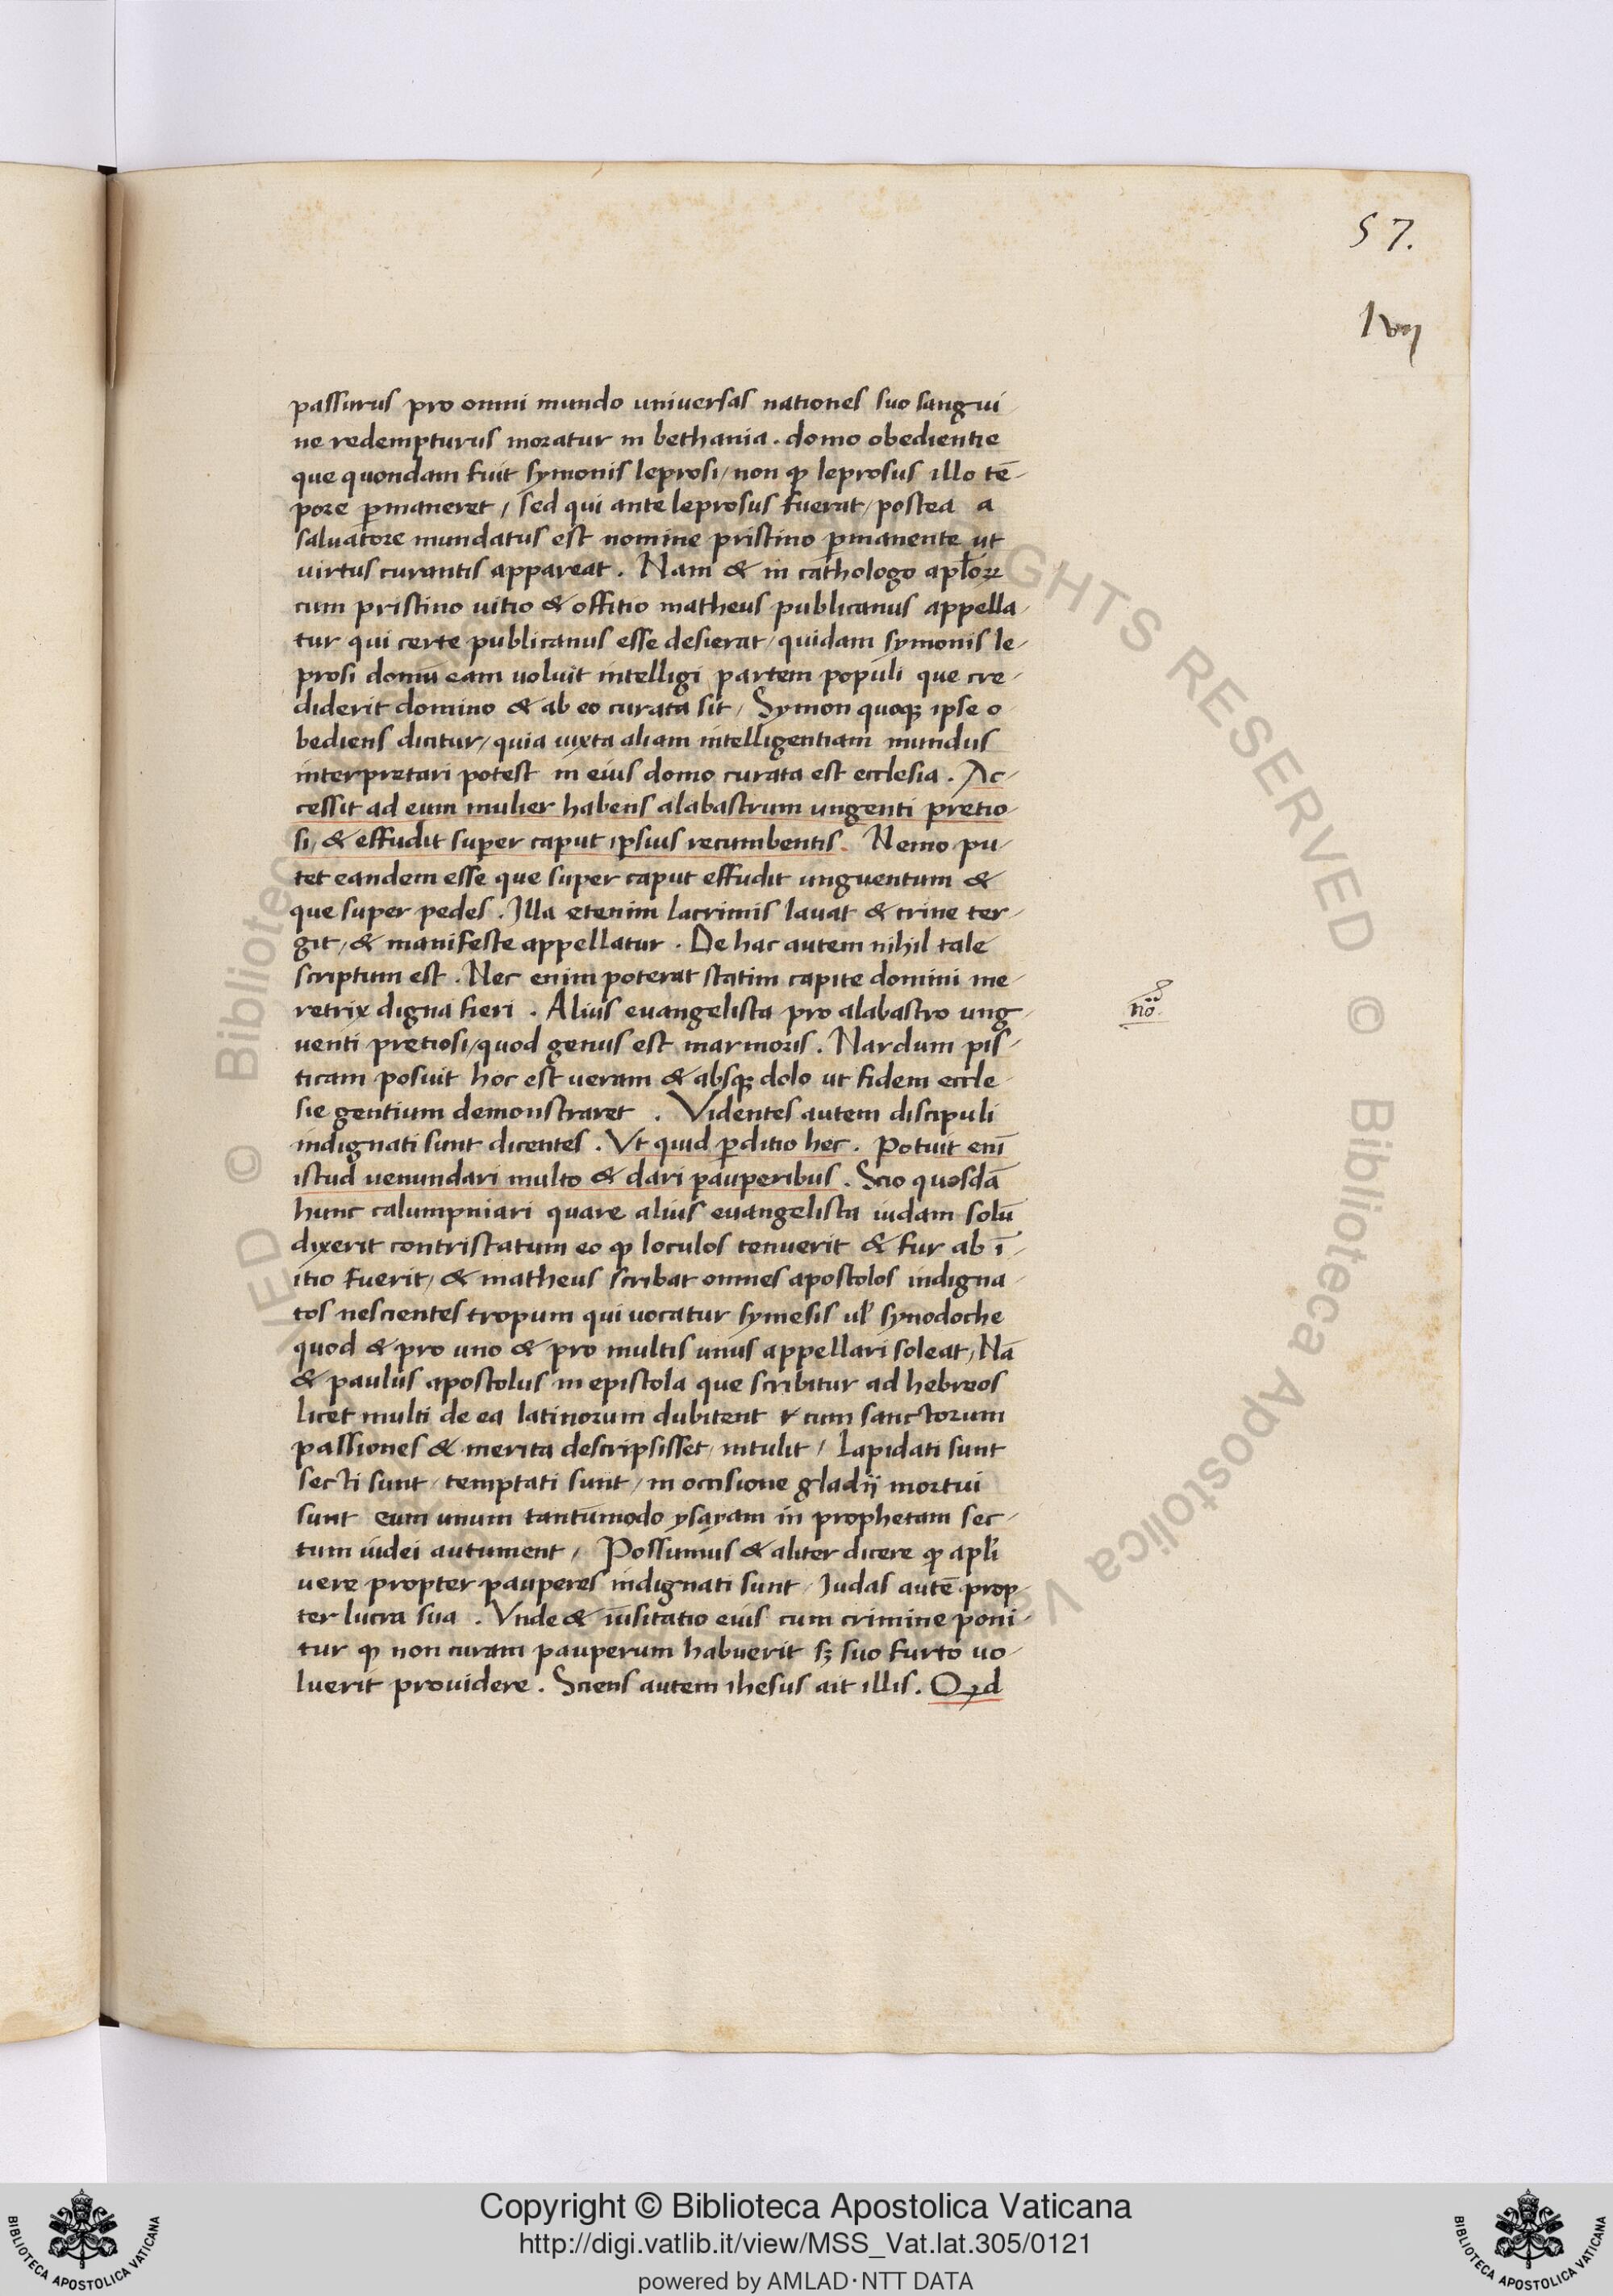 57.
lvij
passurus pro omni mundo universas nationes suo sangui
ne redempturus moratur in bethania . domo obedientie
que quondam fuit symonis leprosi / non ꝙ leprosus illo tē-
pore ꝑmaneret / sed qui ante leprosus fuerat / postea a
saluatore mundatus est nomine pristino ꝑmanente ut
uirtus curantis appareat . Nam & in cathologo apl̄oꝝ
cum pristino uitio & offitio matheus publicanus appella-
tur qui certe publicanus esse desierat / quidam symonis le-
prosi domū eam uoluit intelligi partem populi que cre-
diderit domino & ab eo curata sit / Symon quoqꝫ ipse o-
bediens dicitur / quia iuxta aliam intelligentiam mundus
interpretari potest in eius domo curata est ecclesia . Ac-
cessit ad eum mulier habens alabastrum ungenti pretio-
si / & effudit super caput ipsius recumbentis . Nemo pu-
tet eandem esse que super caput effudit unguentum &
que super pedes . Illa etenim lacrimis lauat & crine ter-
git / & manifeste appellatur . De hac autem nihil tale
scriptum est . Nec enim poterat statim capite domini me-
retrix digna fieri . Alius euangelista pro alabastro ung-
uenti pretiosi / quod genus est marmoris . Nardum pis-
ticam posuit hoc est ueram & absqꝫ dolo ut fidem eccle-
sie gentium demonstraret . Videntes autem discipuli
indignati sunt dicentes . Vt quid ꝑditio hec . Potuit enī
istud uenundari multo & dari pauperibus . Scio quosdā
hunc calumpniari quare alius euangelista iudam solū
dixerit contristatum eo ꝙ loculos tenuerit & fur ab ī-
itio fuerit / & matheus scribat omnes apostolos indigna-
tos nescientes tropum qui uocatur symesis ul̄ synodoche
quod & pro uno & pro multis unus appellari soleat / Nā
& paulus apostolus in epistola que scribitur ad hebreos
licet multi de ea latinorum dubitent & cum sanctorum
passiones & merita descripsisset / intulit / Lapidati sunt
secti sunt / temptati sunt / in occisione gladij mortui
sunt eum unum tantūmodo ysayam in prophetam sec-
tum iudei autument / Possumus & aliter dicere ꝙ apl̄i
uere propter pauperes indignati sunt / Iudas autē prop-
ter lucra sua . Vnde & īusitatio eius cum crimine poni-
tur ꝙ non curam pauperum habuerit sꝫ suo furto uo-
luerit prouidere . Sciens autem ihesus ait illis . Qꝫd
Copyright © Biblioteca Apostolica Vaticana
http://digi.vatlib.it/view/MSS_Vat.lat.305/0121
powered by AMLAD·NTT DATA
BIBLIOTECA APOSTOLICA VATICANA
BIBLIOTECA APOSTOLICA VATICANA